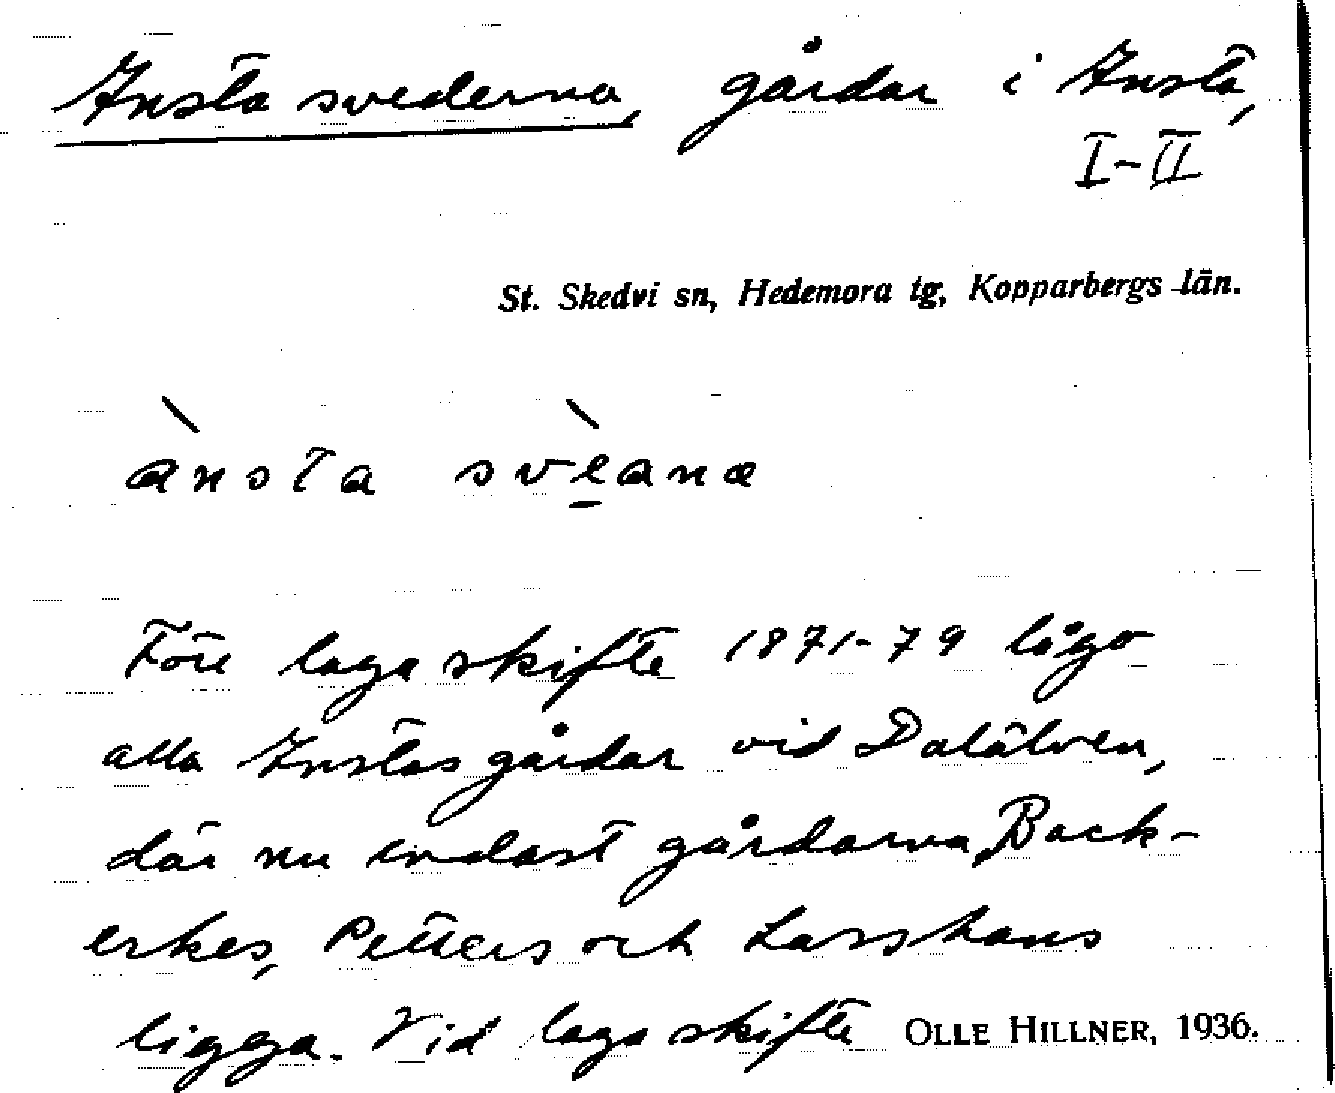 Insta svederna, gårdar i Insta,
I-II
St. Skedvi sn, Hedemora tg, Kopparbergs län.
ànsta svèana
Före laga skifte 1871-79 lågo
alla Instas gårdar vid Dalälven,
där nu endast gårdarna Back-
erkes, Petters och Larshans
ligga. Vid laga skifte OLLE HILLNER, 1936.